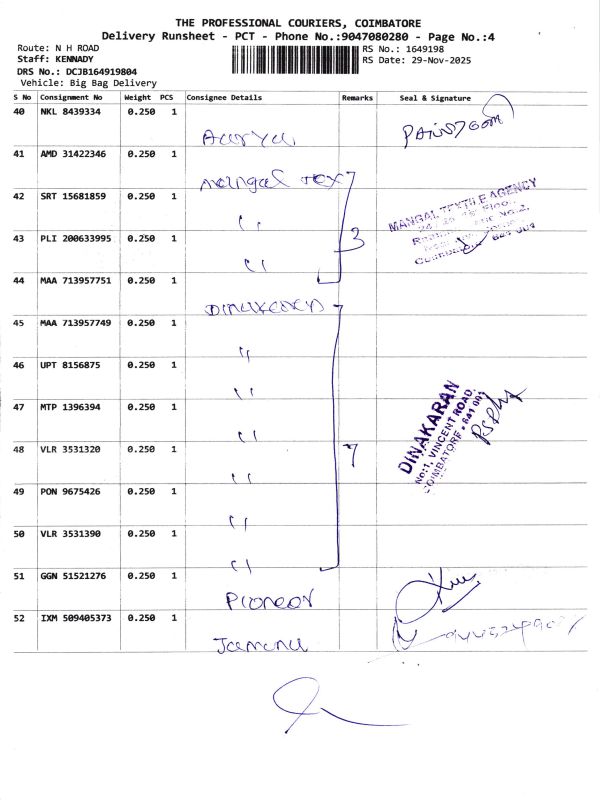 THE PROFESSIONAL COURIERS, COIMBATORE
Delivery Runsheet - PCT - Phone No.:9047080280 - Page No.:4
Route: N H ROAD
Staff: KENNADY
DRS No.: DCJB164919804
Vehicle: Big Bag Delivery
RS No.: 1649198
RS Date: 29-Nov-2025
S No Consignment No Weight PCS Consignee Details Remarks Seal & Signature
40 NKL 8439334 0.250 1
41 AMD 31422346 0.250 1 Mangal Tex
42 SRT 15681859 0.250 1 "
43 PLI 200633995 0.250 1 " 3
44 MAA 713957751 0.250 1 Dinakaran
45 MAA 713957749 0.250 1 "
46 UPT 8156875 0.250 1 "
47 MTP 1396394 0.250 1 "
48 VLR 3531320 0.250 1 " 7
49 PON 9675426 0.250 1 "
50 VLR 3531390 0.250 1 "
51 GGN 51521276 0.250 1 Pioneer
52 IXM 509405373 0.250 1
MANGAL TEXTILE AGENCY
DINAKARAN
No:1, VINCENT ROAD,
COIMBATORE - 641 001